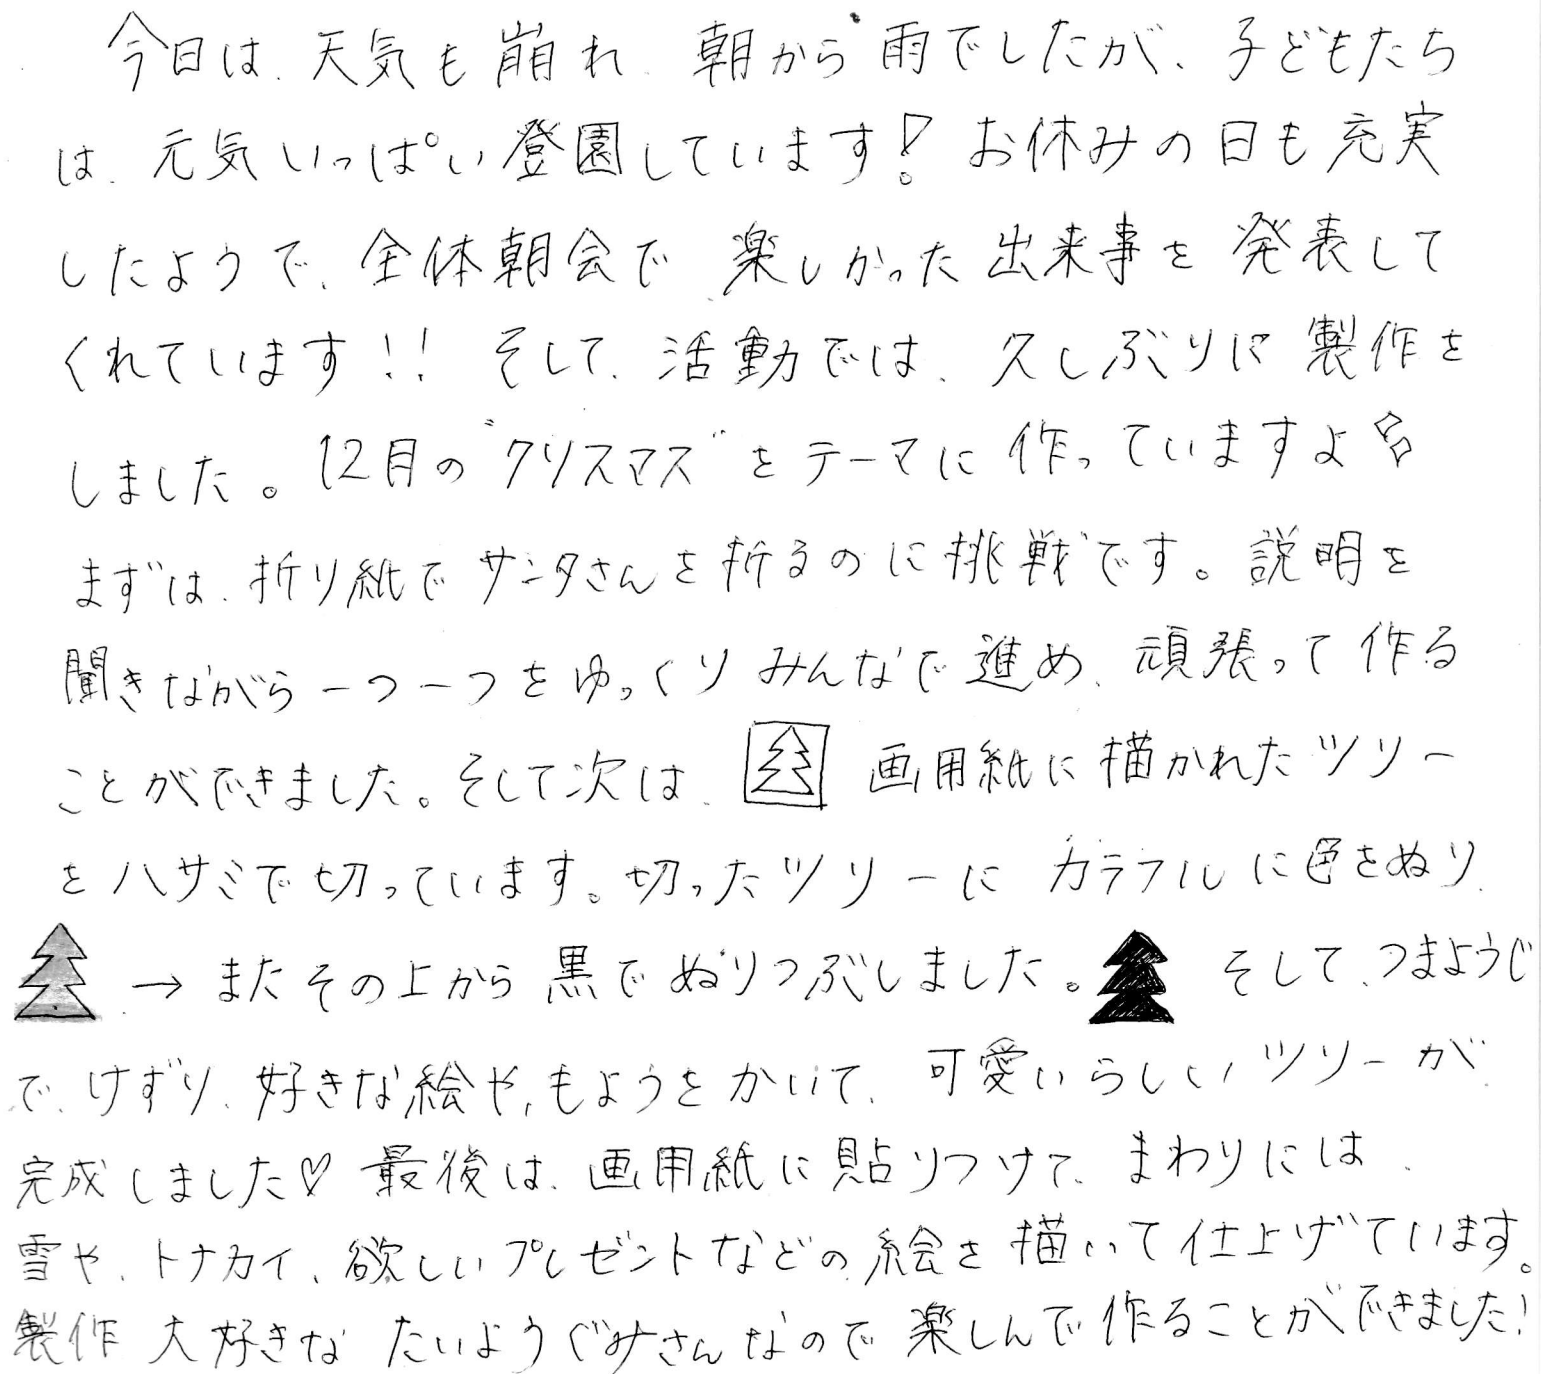 今日は、天気も崩れ、朝から雨でしたが、子どもたち
は、元気いっぱい登園しています！お休みの日も充実
したようで、全体朝会で、楽しかった出来事を発表して
くれています！！そして、活動では、久しぶりに製作を
しました。12月の〝クリスマス〟をテーマに作っていますよ
まずは、折り紙でサンタさんを折るのに挑戦です。説明を
聞きながら一つ一つをゆっくりみんなで進め、頑張って作る
ことができました。そして次は、画用紙に描かれたツリー
をハサミで切っています。切ったツリーにカラフルに色をぬり、
→またその上から黒でぬりつぶしました。そして、つまようじ
で、けずり、好きな絵や、もようをかいて、可愛いらしいツリーが
完成しました♡最後は、画用紙に貼りつけて、まわりには、
雪や、トナカイ、欲しいプレゼントなどの絵を描いて仕上げています。
製作大好きなたいようぐみさんなので楽しんで作ることができました！